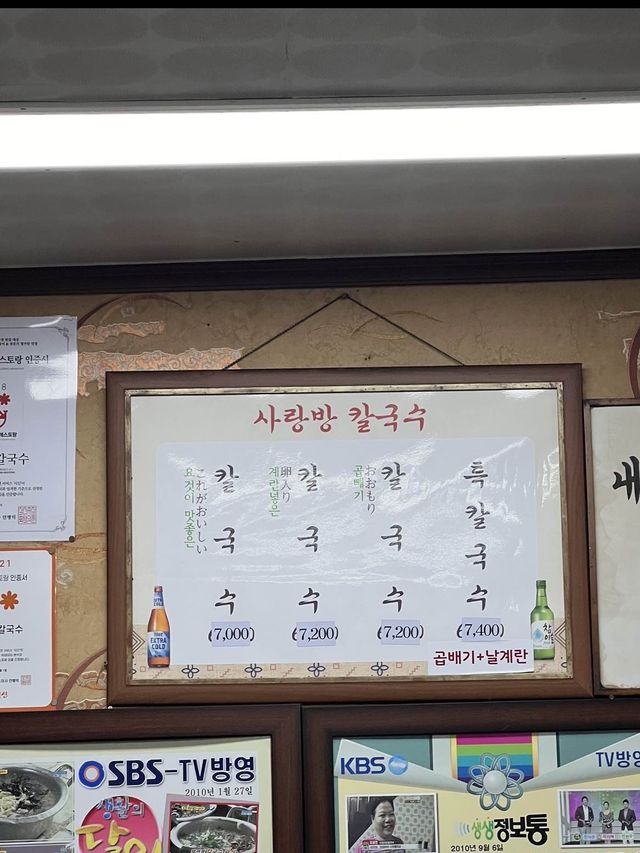 스토랑 인증서
칼국수
사랑방 칼국수
특칼국수
(7,400)
곱배기+날계란
칼국수
おおもり
곱배기
(7,200)
칼국수
卵入り
계란넣은
(7,200)
칼국수
これがおいしい
요것이 맛좋은
(7,000)
EXTRA
COLD
내
21
인증서
칼국수
SBS-TV방영
2010년 1월 27일
생활의
달인
KBS
TV방영
생생정보통
2010년 9월 6일